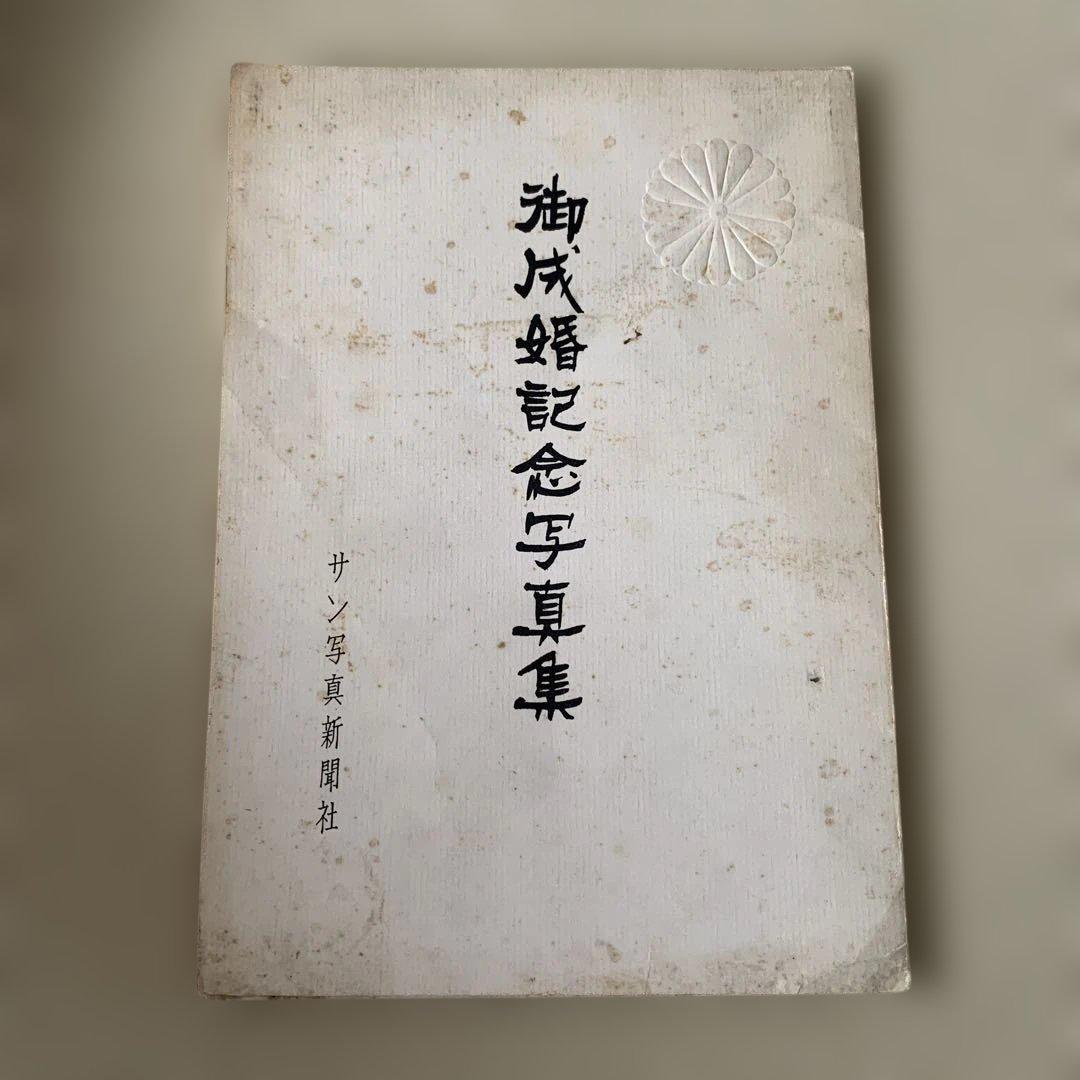 御成婚記念写真集
サン写真新聞社